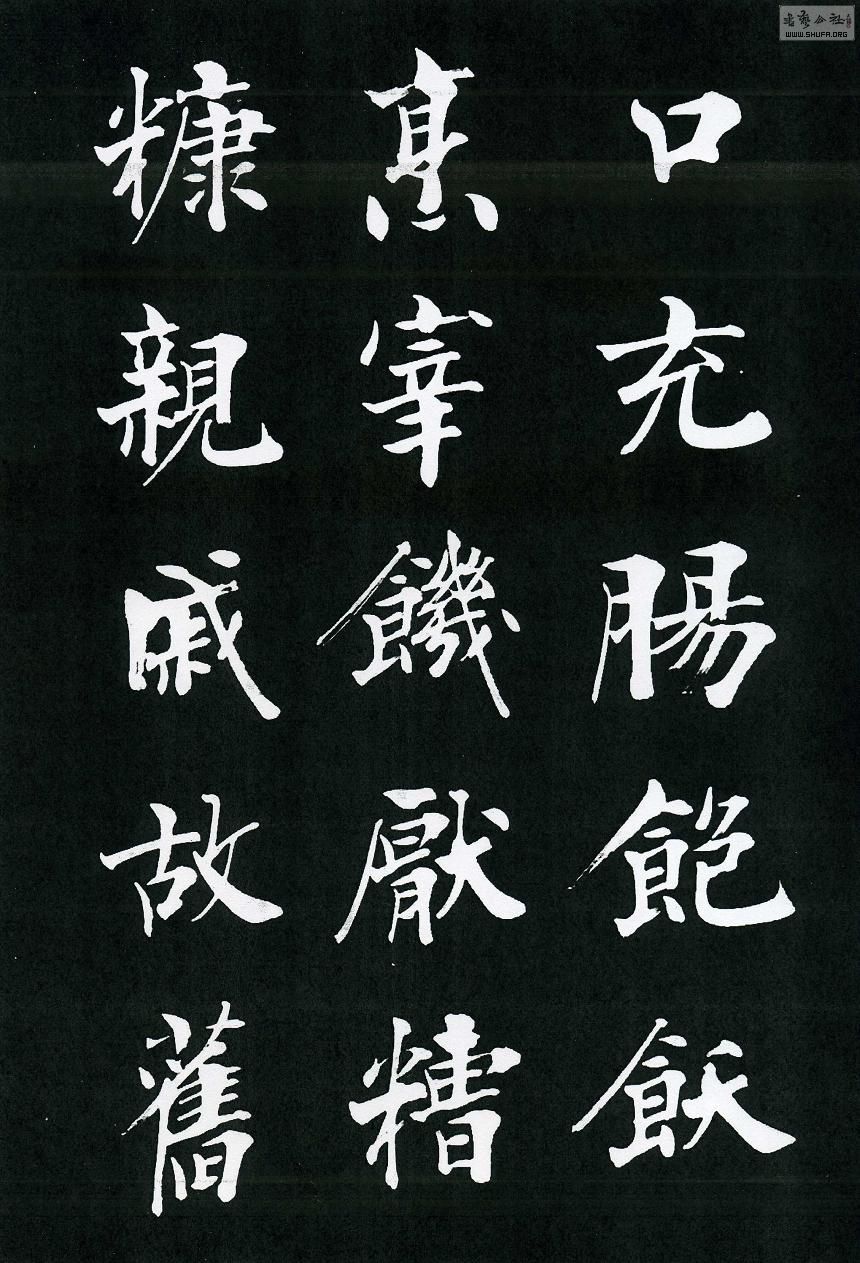 口充腸飽飫
烹宰饑厭糟
糠親戚故舊
書藝公社
WWW.SHUFA.ORG